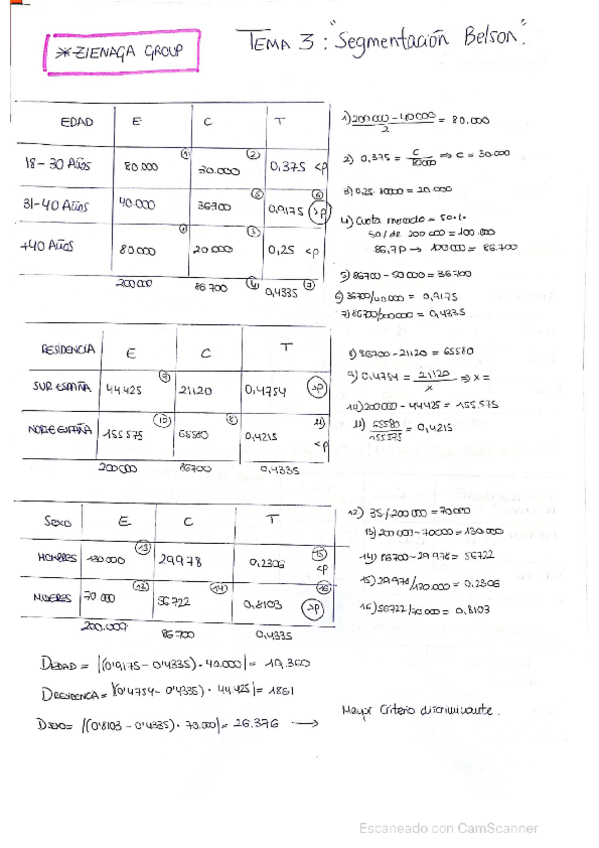 TEMA 3: "Segmentación Belson".
*ZIENAGA GROUP
EDAD E C T
18-30 Años 80.000 (1) 30.000 (2) 0,375 <p
31-40 Años 40.000 36700 (5) 0,9175 (6) >p
+40 Años 80.000 (1) 20000 (3) 0,25 <p
200000 86700 (4) 0,4335 (7)
1) 200000-40000/2 = 80.000
2) 0,375 = C/80000 ⇒ C = 30000
3) 0,25. = 20.000
4) Cuota mercado = 50.%
50% de 200000 = 100.000
86,7 P → 100000 = 86.700
5) 86700-50000 = 36700
6) 36700/40.000 = 0,9175
7) 86700/200000 = 0,4335
RESIDENCIA E C T
SUR ESPAÑA 44.425 (9) 21120 0,4754 >p
NORTE ESPAÑA 155575 (10) 65580 (8) 0,4215 (11) <p
200000 86700 0,4335
8) 86700-21120 = 65580
9) 0,4754 = 21120/x ⇒ x =
10) 200000-44425 = 155.575
11) 65580/155575 = 0,4215
Sexo E C T
HOMBRES 130000 (13) 29978 0,2306 (15) <p
MUJERES 70000 (12) 56722 (14) 0,8103 (16) >p
200.000 86700 0,4335
12) 35/200000 = 70000
13) 200000-70000 = 130000
14) 86700-29978 = 56722
15) 29978/130.000 = 0,2306
16) 56722/70000 = 0,8103
DEDAD = |(0'9175-0'4335)·40.000| = 19.360
DRESIDENCIA = |(0'4754-0'4335)·44425| = 1861
DSEXO = |(0'8103-0'4335)·70.000| = 26.376 →
Mayor criterio discriminante.
Escaneado con CamScanner